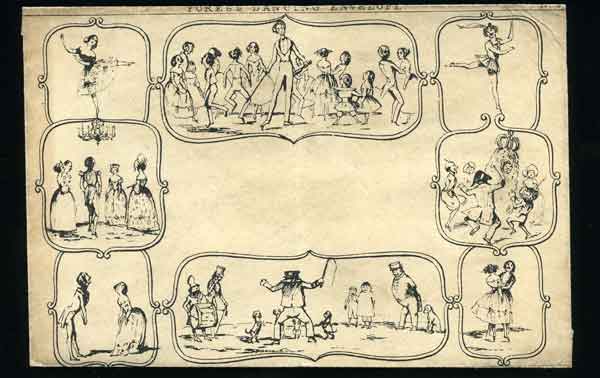 FORES'S DANCING ENVELOPE